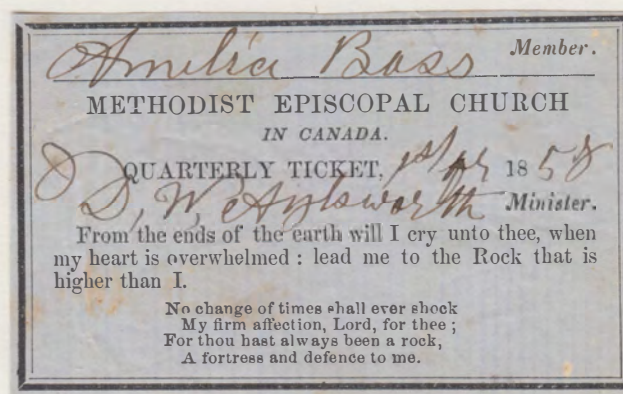 Amelia Bass Member.
METHODIST EPISCOPAL CHURCH
IN CANADA.
QUARTERLY TICKET, 1st 1858
D, W, Aylsworth Minister.
From the ends of the earth will I cry unto thee, when
my heart is overwhelmed : lead me to the Rock that is
higher than I.
No change of times shall ever shock
My firm affection, Lord, for thee ;
For thou hast always been a rock,
A fortress and defence to me.